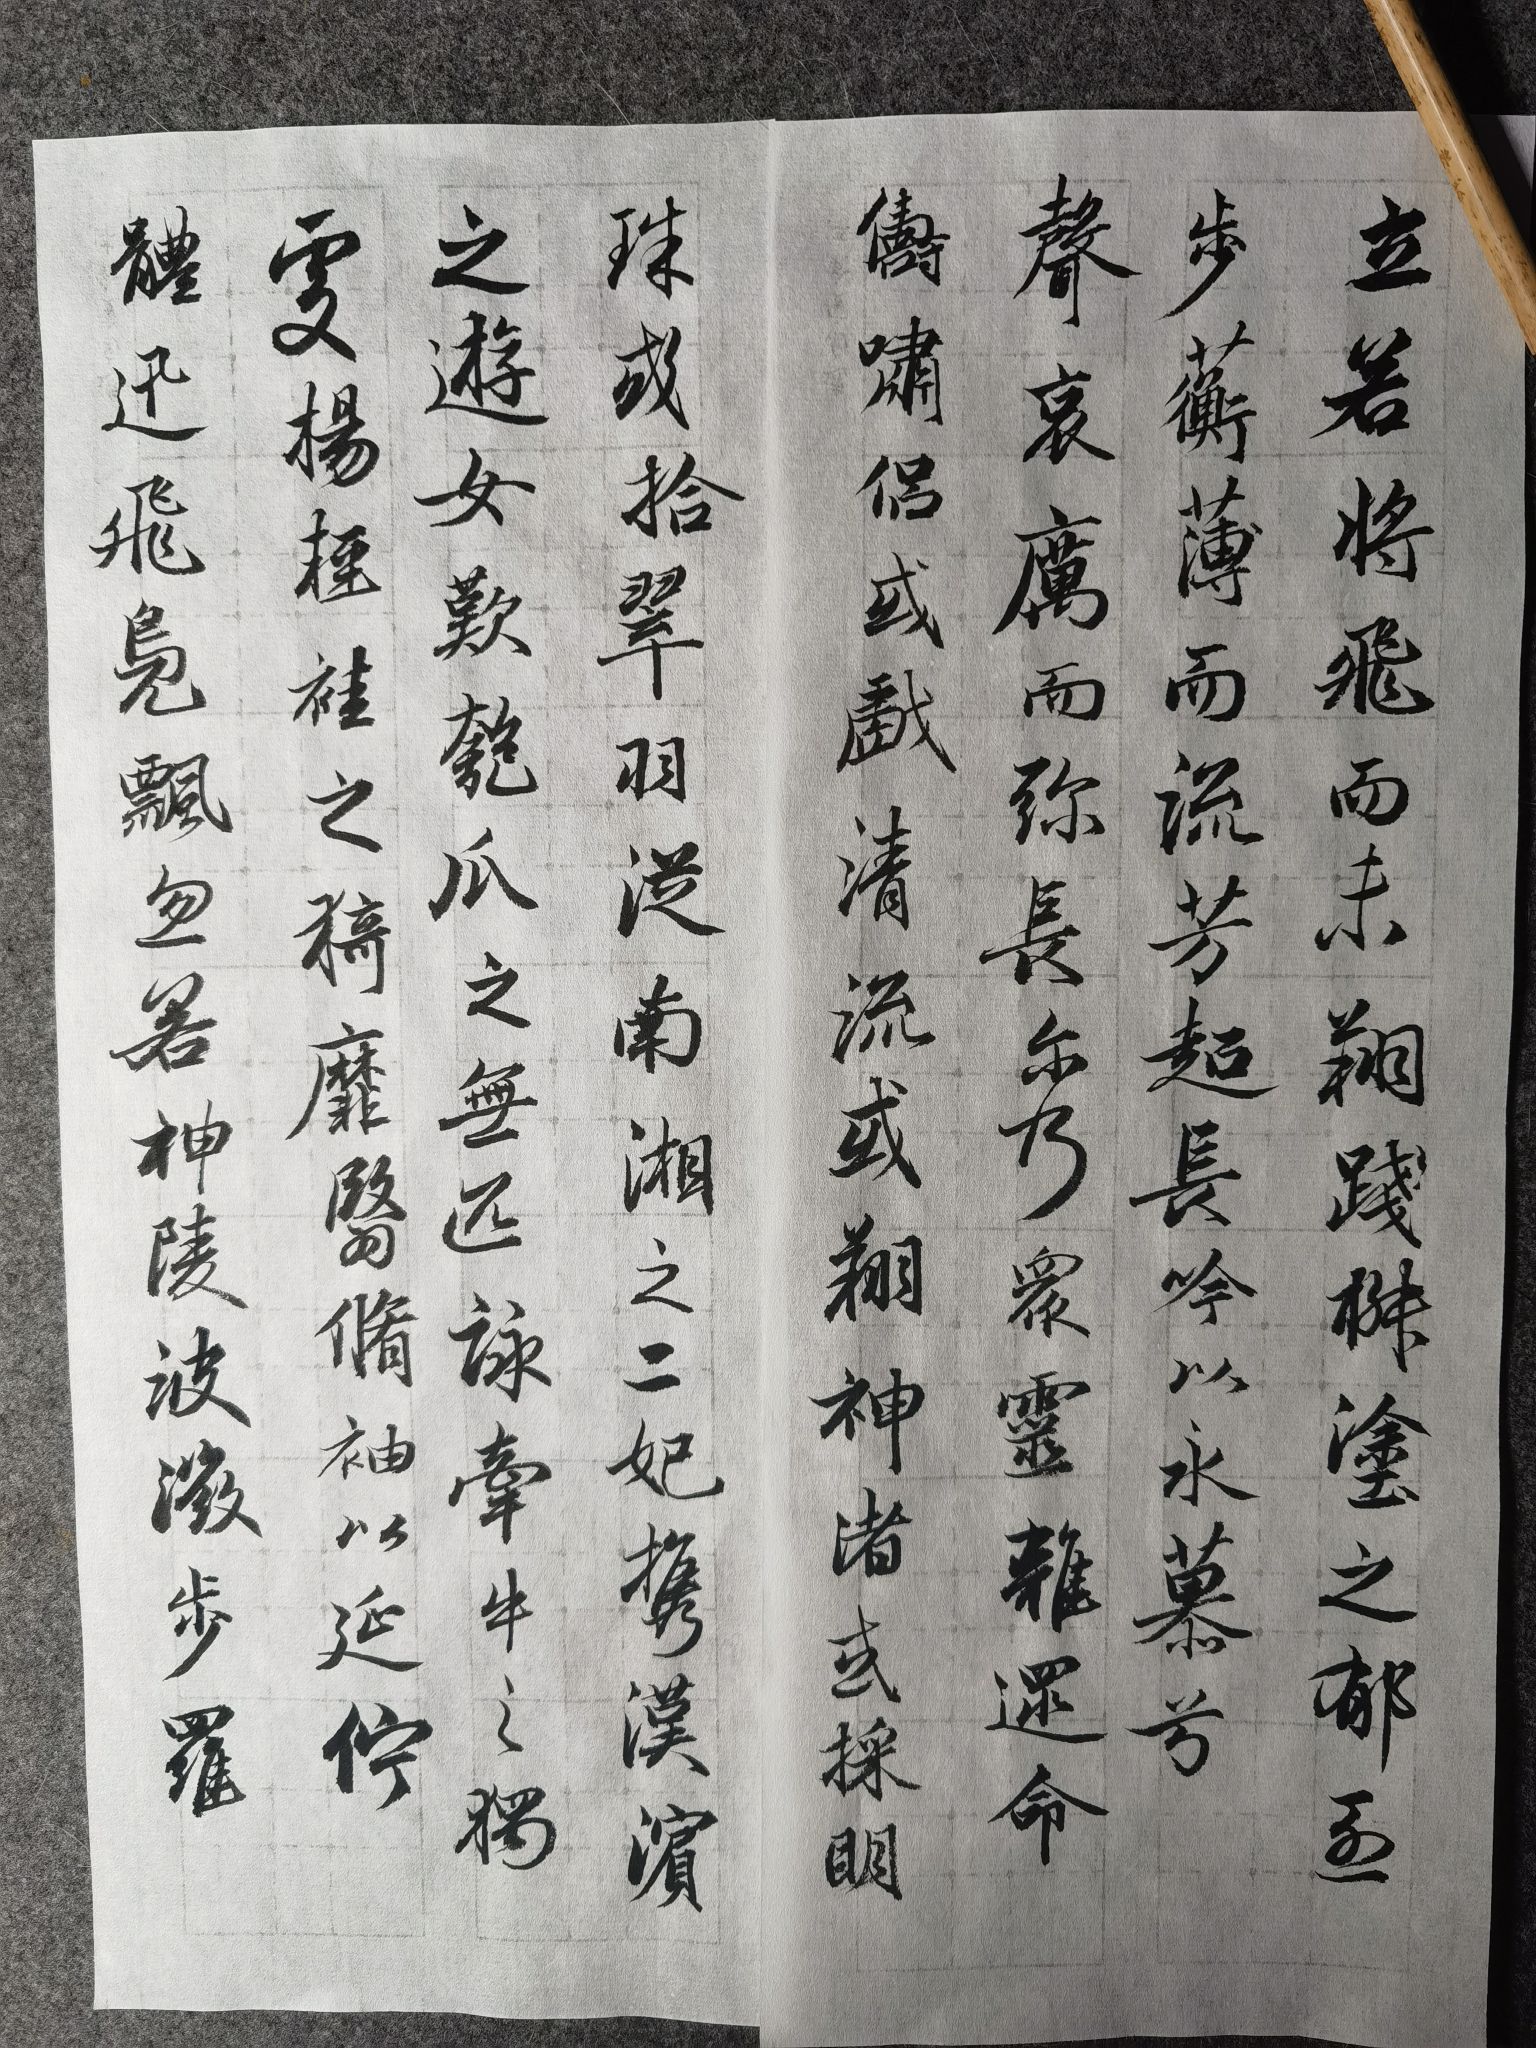 立若將飛而未翔踐椒塗之郁烈
步蘅薄而流芳超長吟以永慕兮
聲哀厲而弥長尔乃眾靈雜遝命
儔嘯侶或戲清流或翔神渚或採明
珠或拾翠羽從南湘之二妃携漢濱
之遊女歎匏瓜之無匹詠牽牛之獨
處揚輕袿之猗靡翳脩袖以延佇
體迅飛鳧飄忽若神陵波微步羅